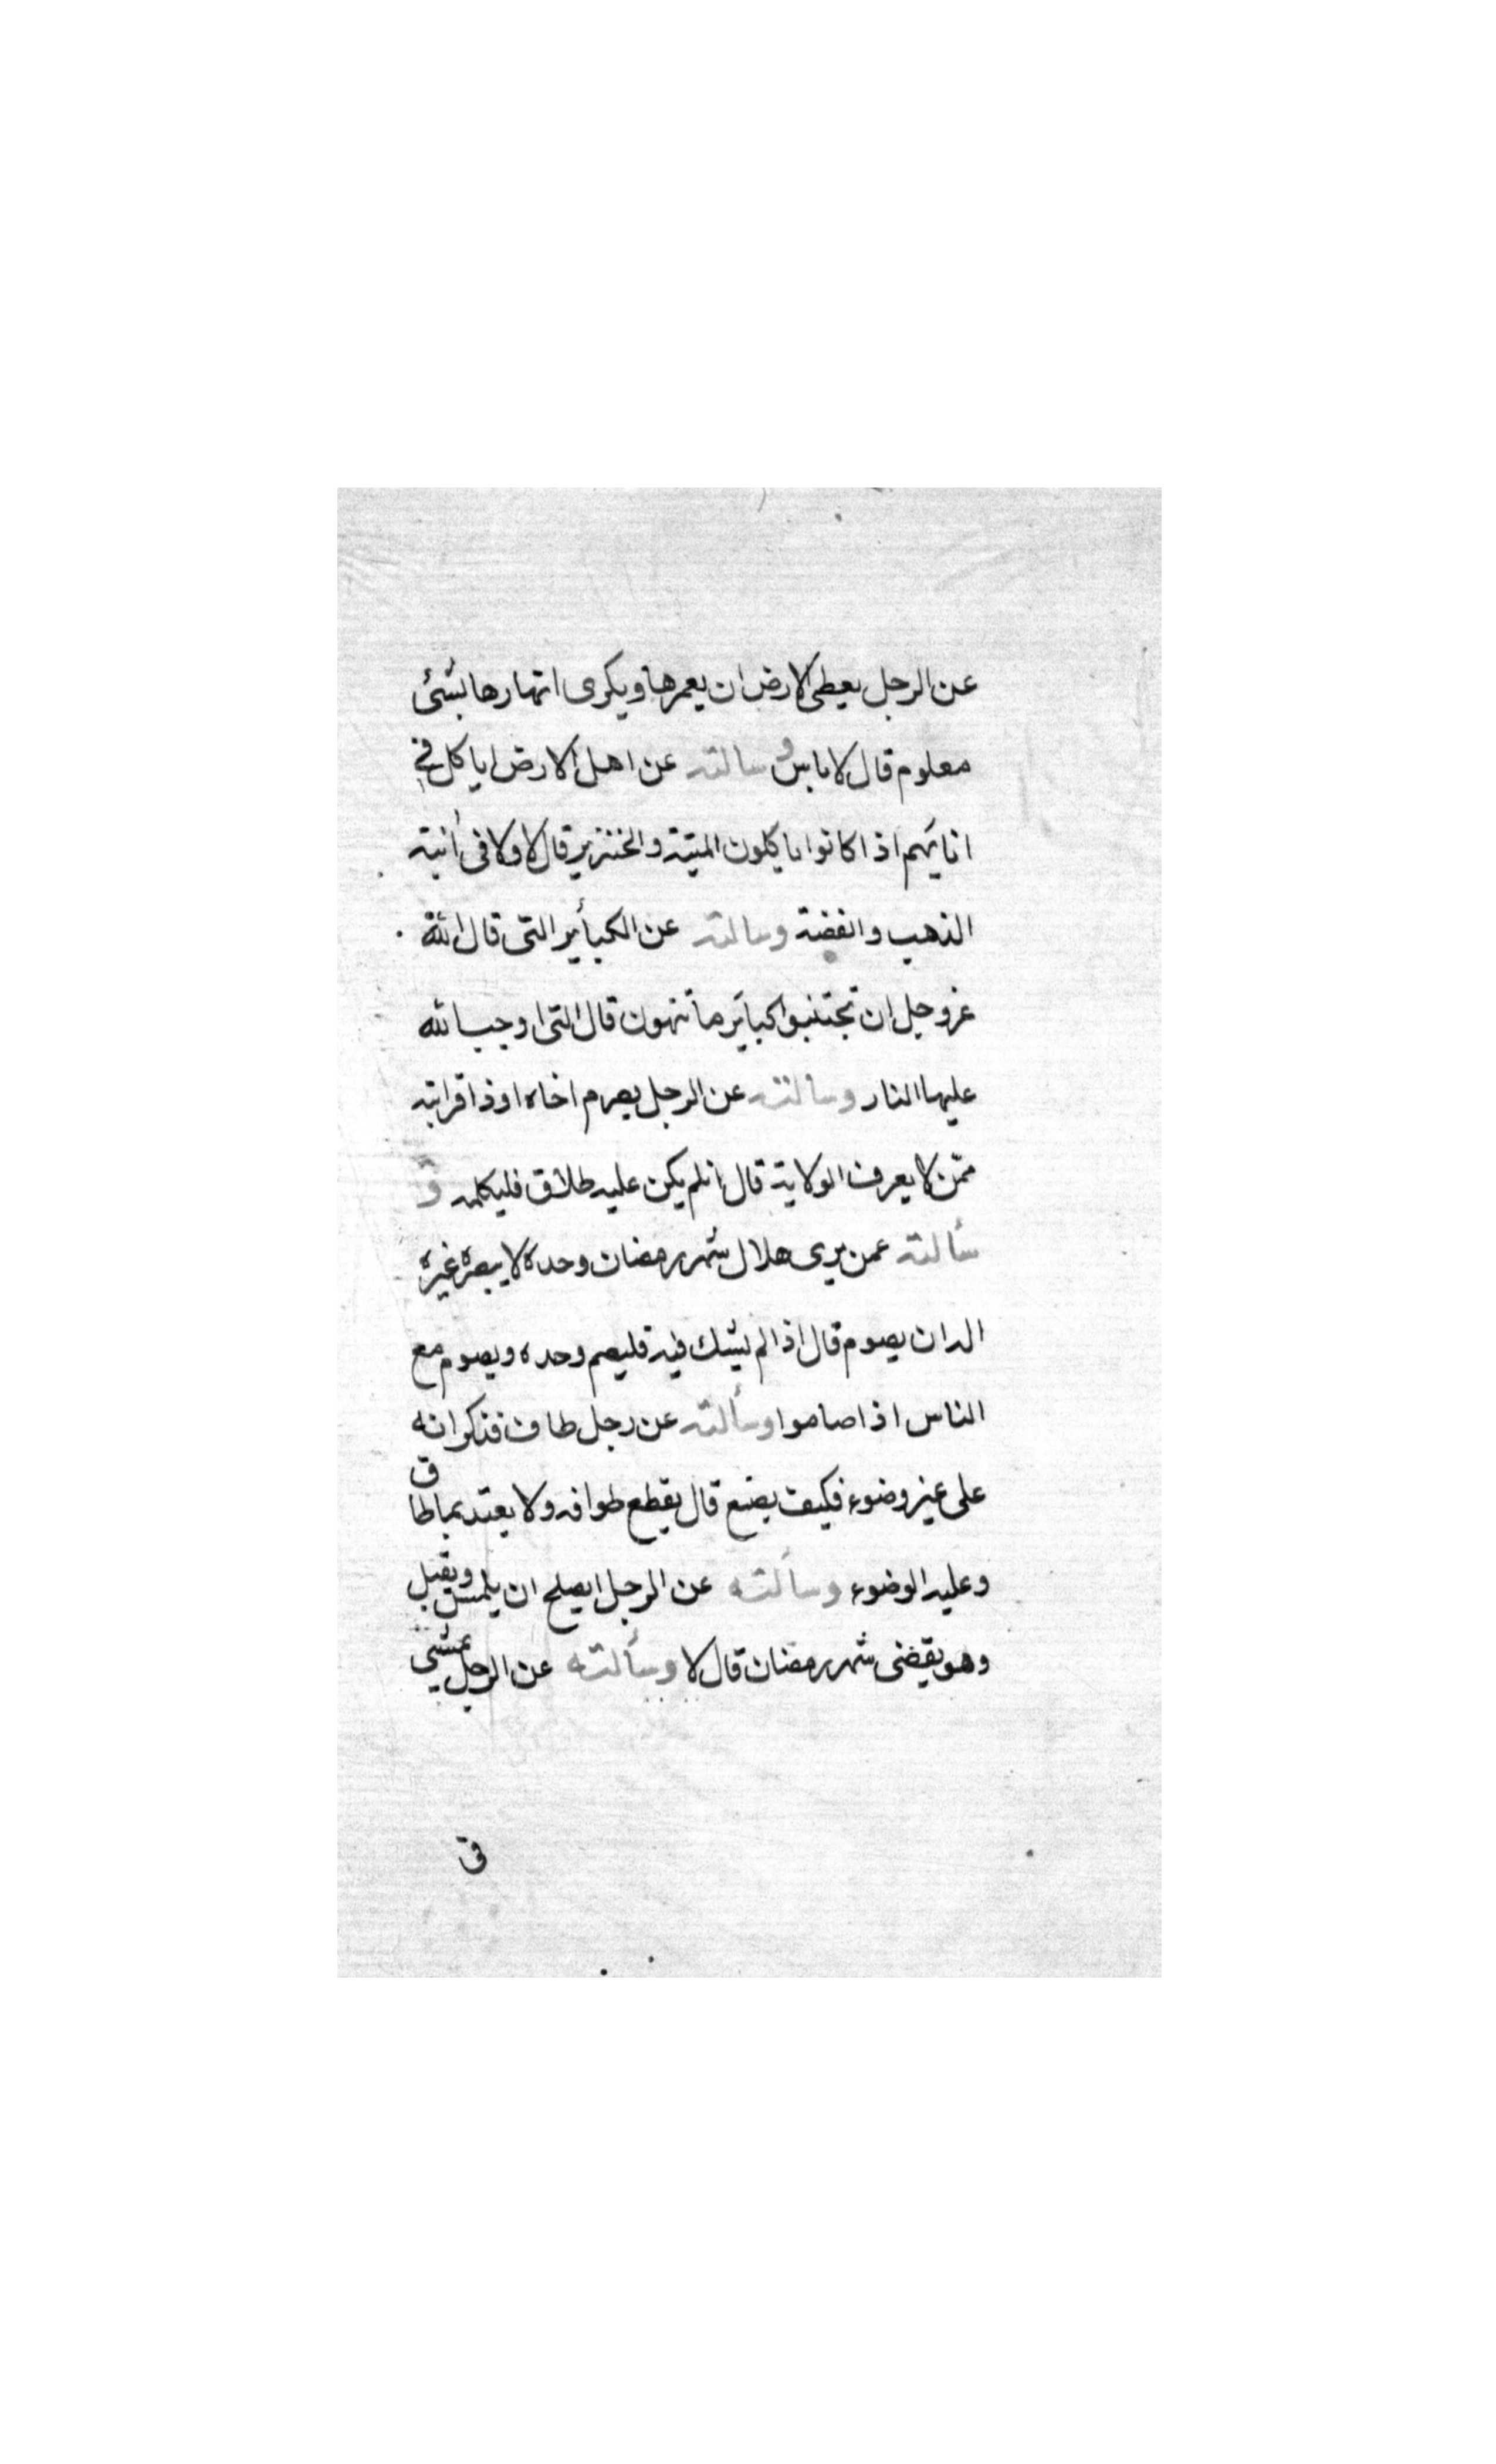 عن الرجل يعطى الارض ان يعمرها ويكرى انهارها بشئ
معلوم قال لا باس و سالته عن اهل الارض ايا كل فى
انائهم اذا كانوا يا كلون الميتة والخنزير قال لا ولا فى أنية
الذهب والفضة وسالته عن الكبأير التى قال الله
عزوجل ان تجتنبوا كبائر ما تنهون قال التى اوجب الله
عليها النار وسألته عن الرجل يصرم اخاه او ذا قرابته
ممّن لا يعرف الولاية قال انلم يكن عليه طلاق فليكلمه و
سألته عمن يرى هلال شهر رمضان وحده لا يبصره غيره
اله ان يصوم قال اذا لم يشك فيه فليصم وحده ويصوم مع
الناس اذا صاموا وسألته عن رجل طاف فذكر انه
على غير وضوء فكيف يصنع قال يقطع طوافه ولا يعتد بما طاف
وعليه الوضوء وسألته عن الرجل ايصلح ان يلمس ويقبل
وهو يقضى شهر رمضان قال لا وسألته عن الرجل يمشي
فى